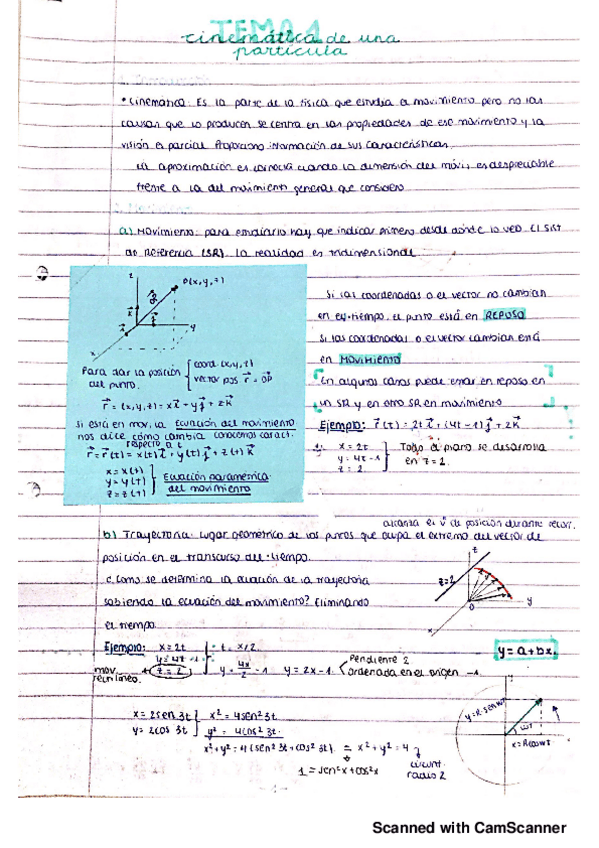 TEMA 1
cinemática de una
partícula
1. Introducción
• Cinemática: Es la parte de la física que estudia el movimiento pero no las
causas que lo producen, se centra en las propiedades de ese movimiento y la
visión es parcial. Proporciona información de sus características.
La aproximación es correcta cuando la dimensión del móvil es despreciable
frente a la del movimiento general que considero
a) Movimiento: para estudiarlo hay que indicar primero desde dónde lo veo. El Sist
de Referencia (SR). La realidad es tridimensional
z
P(x,y,z)
y
x
Para dar la posición
del punto.
coord. (x,y,z)
vector pos r⃗ = OP
r⃗ = (x,y,z) = xi⃗ + yj⃗ + zk⃗
Si está en mov, la Ecuación del movimiento
nos dice cómo cambia
respecto a t
r⃗ = r⃗(t) = x(t)i⃗ + y(t)j⃗ + z(t)k⃗
x = x(t)
y = y(t)
z = z(t)
Ecuación paramétrica
del movimiento
Si las coordenadas o el vector no cambian
en el tiempo, el punto está en REPOSO
Si las coordenadas o el vector cambian está
en MOVIMIENTO
En algunos casos puede estar en reposo en
un SR y en otro SR en movimiento
Ejemplo: r⃗(t) = 2ti⃗ + (4t-1)j⃗ + 2k⃗
x = 2t
y = 4t-1
z = 2
Todo el plano se desarrolla
en z = 2.
alcanza el v⃗ de posición durante
b) Trayectoria: Lugar geométrico de los puntos que ocupa el extremo del vector de
posición en el transcurso del tiempo.
¿Cómo se determina la ecuación de la trayectoria
sabiendo la ecuación del movimiento? Eliminando
el tiempo.
z
z=2
0
y
x
Ejemplo: x = 2t
y = 4t-1
z = 2
t = x/2
y = 4x/2 - 1 y = 2x-1
Pendiente 2
ordenada en el origen -1
mov.
rectilíneo.
y = a+bx
x = 2sen 3t
y = 2cos 3t
x² = 4sen² 3t
y² = 4cos² 3t
x²+y² = 4(sen² 3t + cos² 3t) = x²+y² = 4
1 = sen²x + cos²x
circunf.
radio 2
y = R·senwt
wt
x = Rcoswt
Scanned with CamScanner